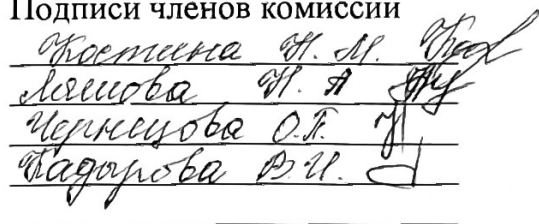 Подписи членов комиссии
Костина Н. М.
Н. А
Чернецова О.П.
Кадырова В.И.